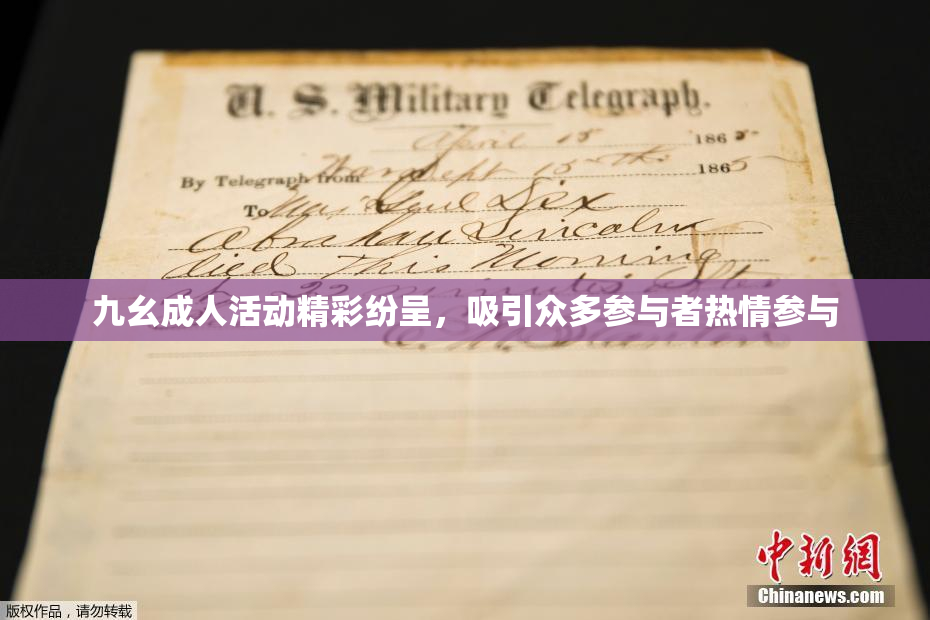 U. S. Military Telegraph.
April 15 1865
By Telegraph from War Dept 15th 1865
To Maj Genl Dix
Abraham Lincoln
died This Morning
at 22 minutes after
九幺成人活动精彩纷呈，吸引众多参与者热情参与
E. M. Stanton
中新网
Chinanews.com
版权作品，请勿转载